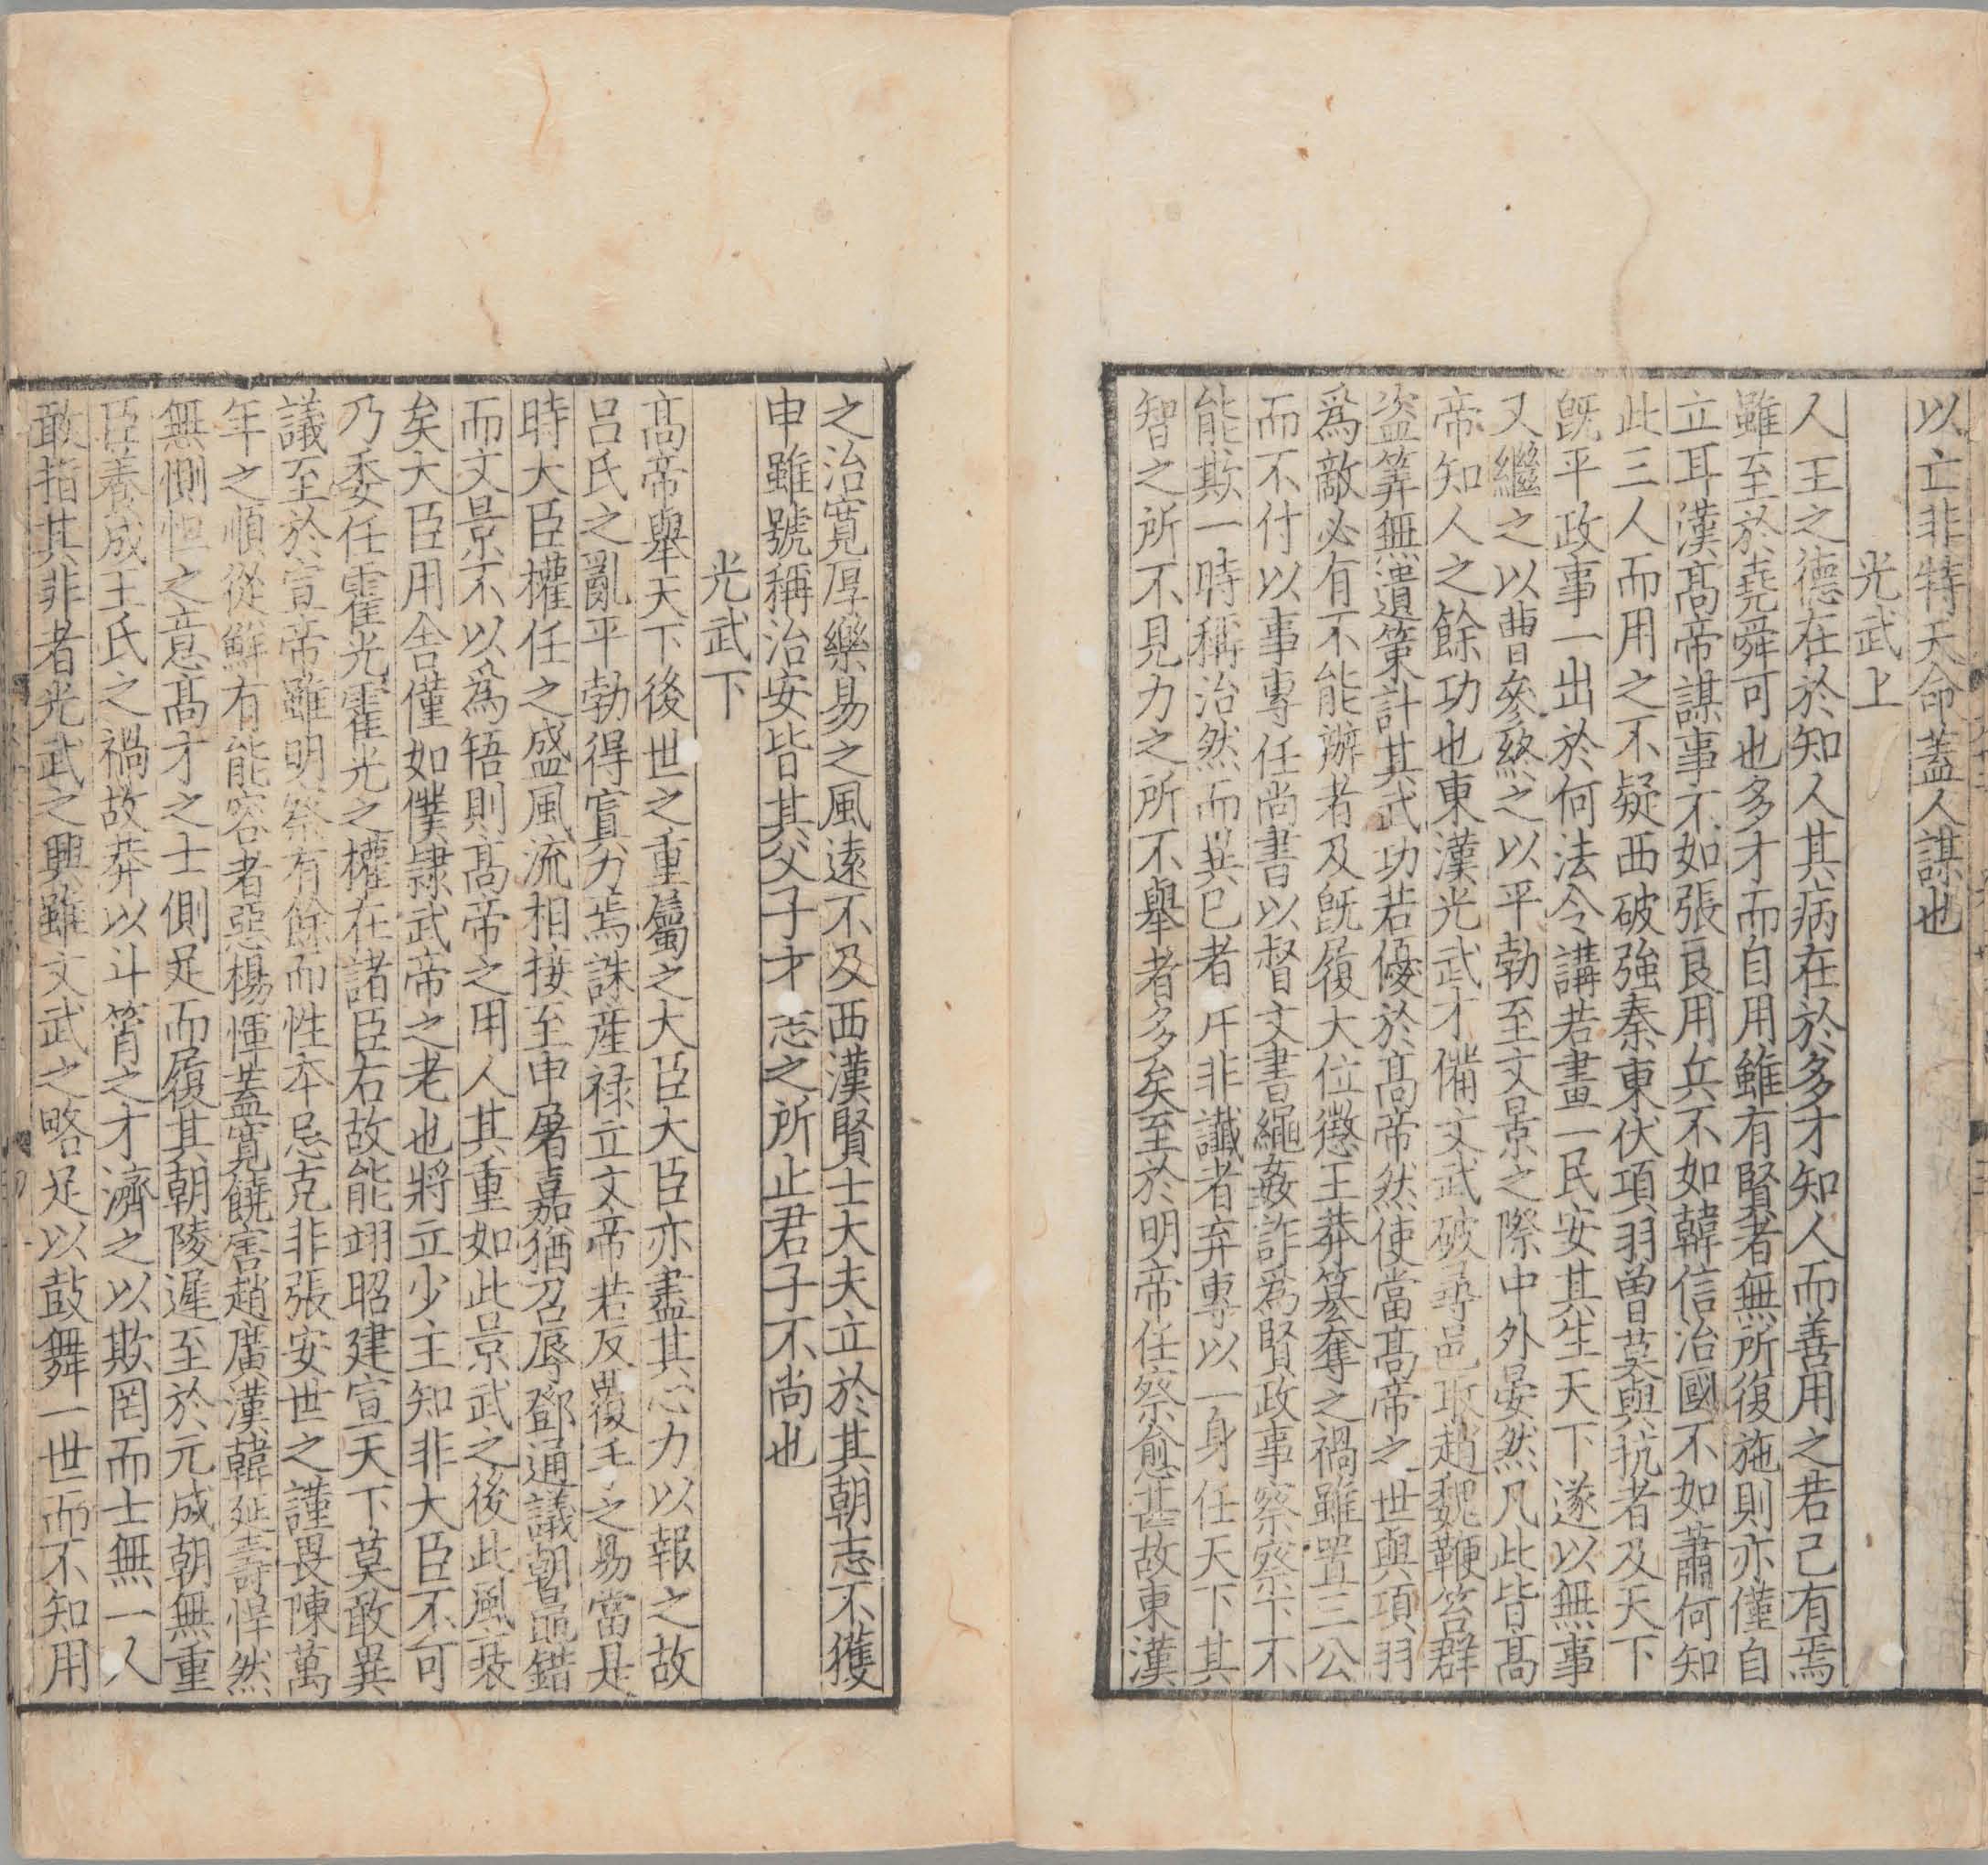 以亡非特天命蓋人謀也
光武上
人王之德在於知人其病在於多才知人而善用之若己有焉
雖至於堯舜可也多才而自用雖有賢者無所復施則亦僅自
立耳漢髙帝謀事不如張良用兵不如韓信治國不如蕭何知
此三人而用之不疑西破強秦東伏項羽曾莫與抗者及天下
旣平政事一出於何法令講若畫一民安其生天下遂以無事
又繼之以曹參終之以平勃至文景之際中外晏然凡此皆髙
帝知人之餘功也東漢光武才備文武破尋邑取趙魏鞭笞群
盗筭無遺策計其武功若優於髙帝然使當髙帝之世與項羽
爲敵必有不能辦者及旣履大位懲王莽簒奪之禍雖置三公
而不付以事專任尚書以督文書繩姦詐爲賢政事察察下不
能欺一時稱治然而異己者斥非讖者弃專以一身任天下其
智之所不見力之所不舉者多矣至於明帝任察愈甚故東漢
之治寛厚樂易之風遠不及西漢賢士大夫立於其朝志不獲
申雖號稱治安皆其父子才志之所止君子不尚也
光武下
髙帝舉天下後世之重屬之大臣大臣亦盡其心力以報之故
呂氏之亂平勃得寘力焉誅産禄立文帝若反覆手之易當是
時大臣權任之盛風流相接至申屠嘉猶召辱鄧通議朝鼂錯
而文景不以爲牾則髙帝之用人其重如此景武之後此風衰
矣大臣用舍僅如僕隷武帝之老也將立少主知非大臣不可
乃委任霍光霍光之權在諸臣右故能翊昭建宣天下莫敢異
議至於宣帝雖明察有餘而性本忌克非張安世之謹畏陳萬
年之順從鮮有能容者惡楊惲蓋寛饒害趙廣漢韓延壽悍然
無惻怛之意髙才之士側足而履其朝陵遲至於元成朝無重
臣養成王氏之禍故莽以斗筲之才濟之以欺罔而士無一人
敢指其非者光武之興雖文武之略足以鼓舞一世而不知用